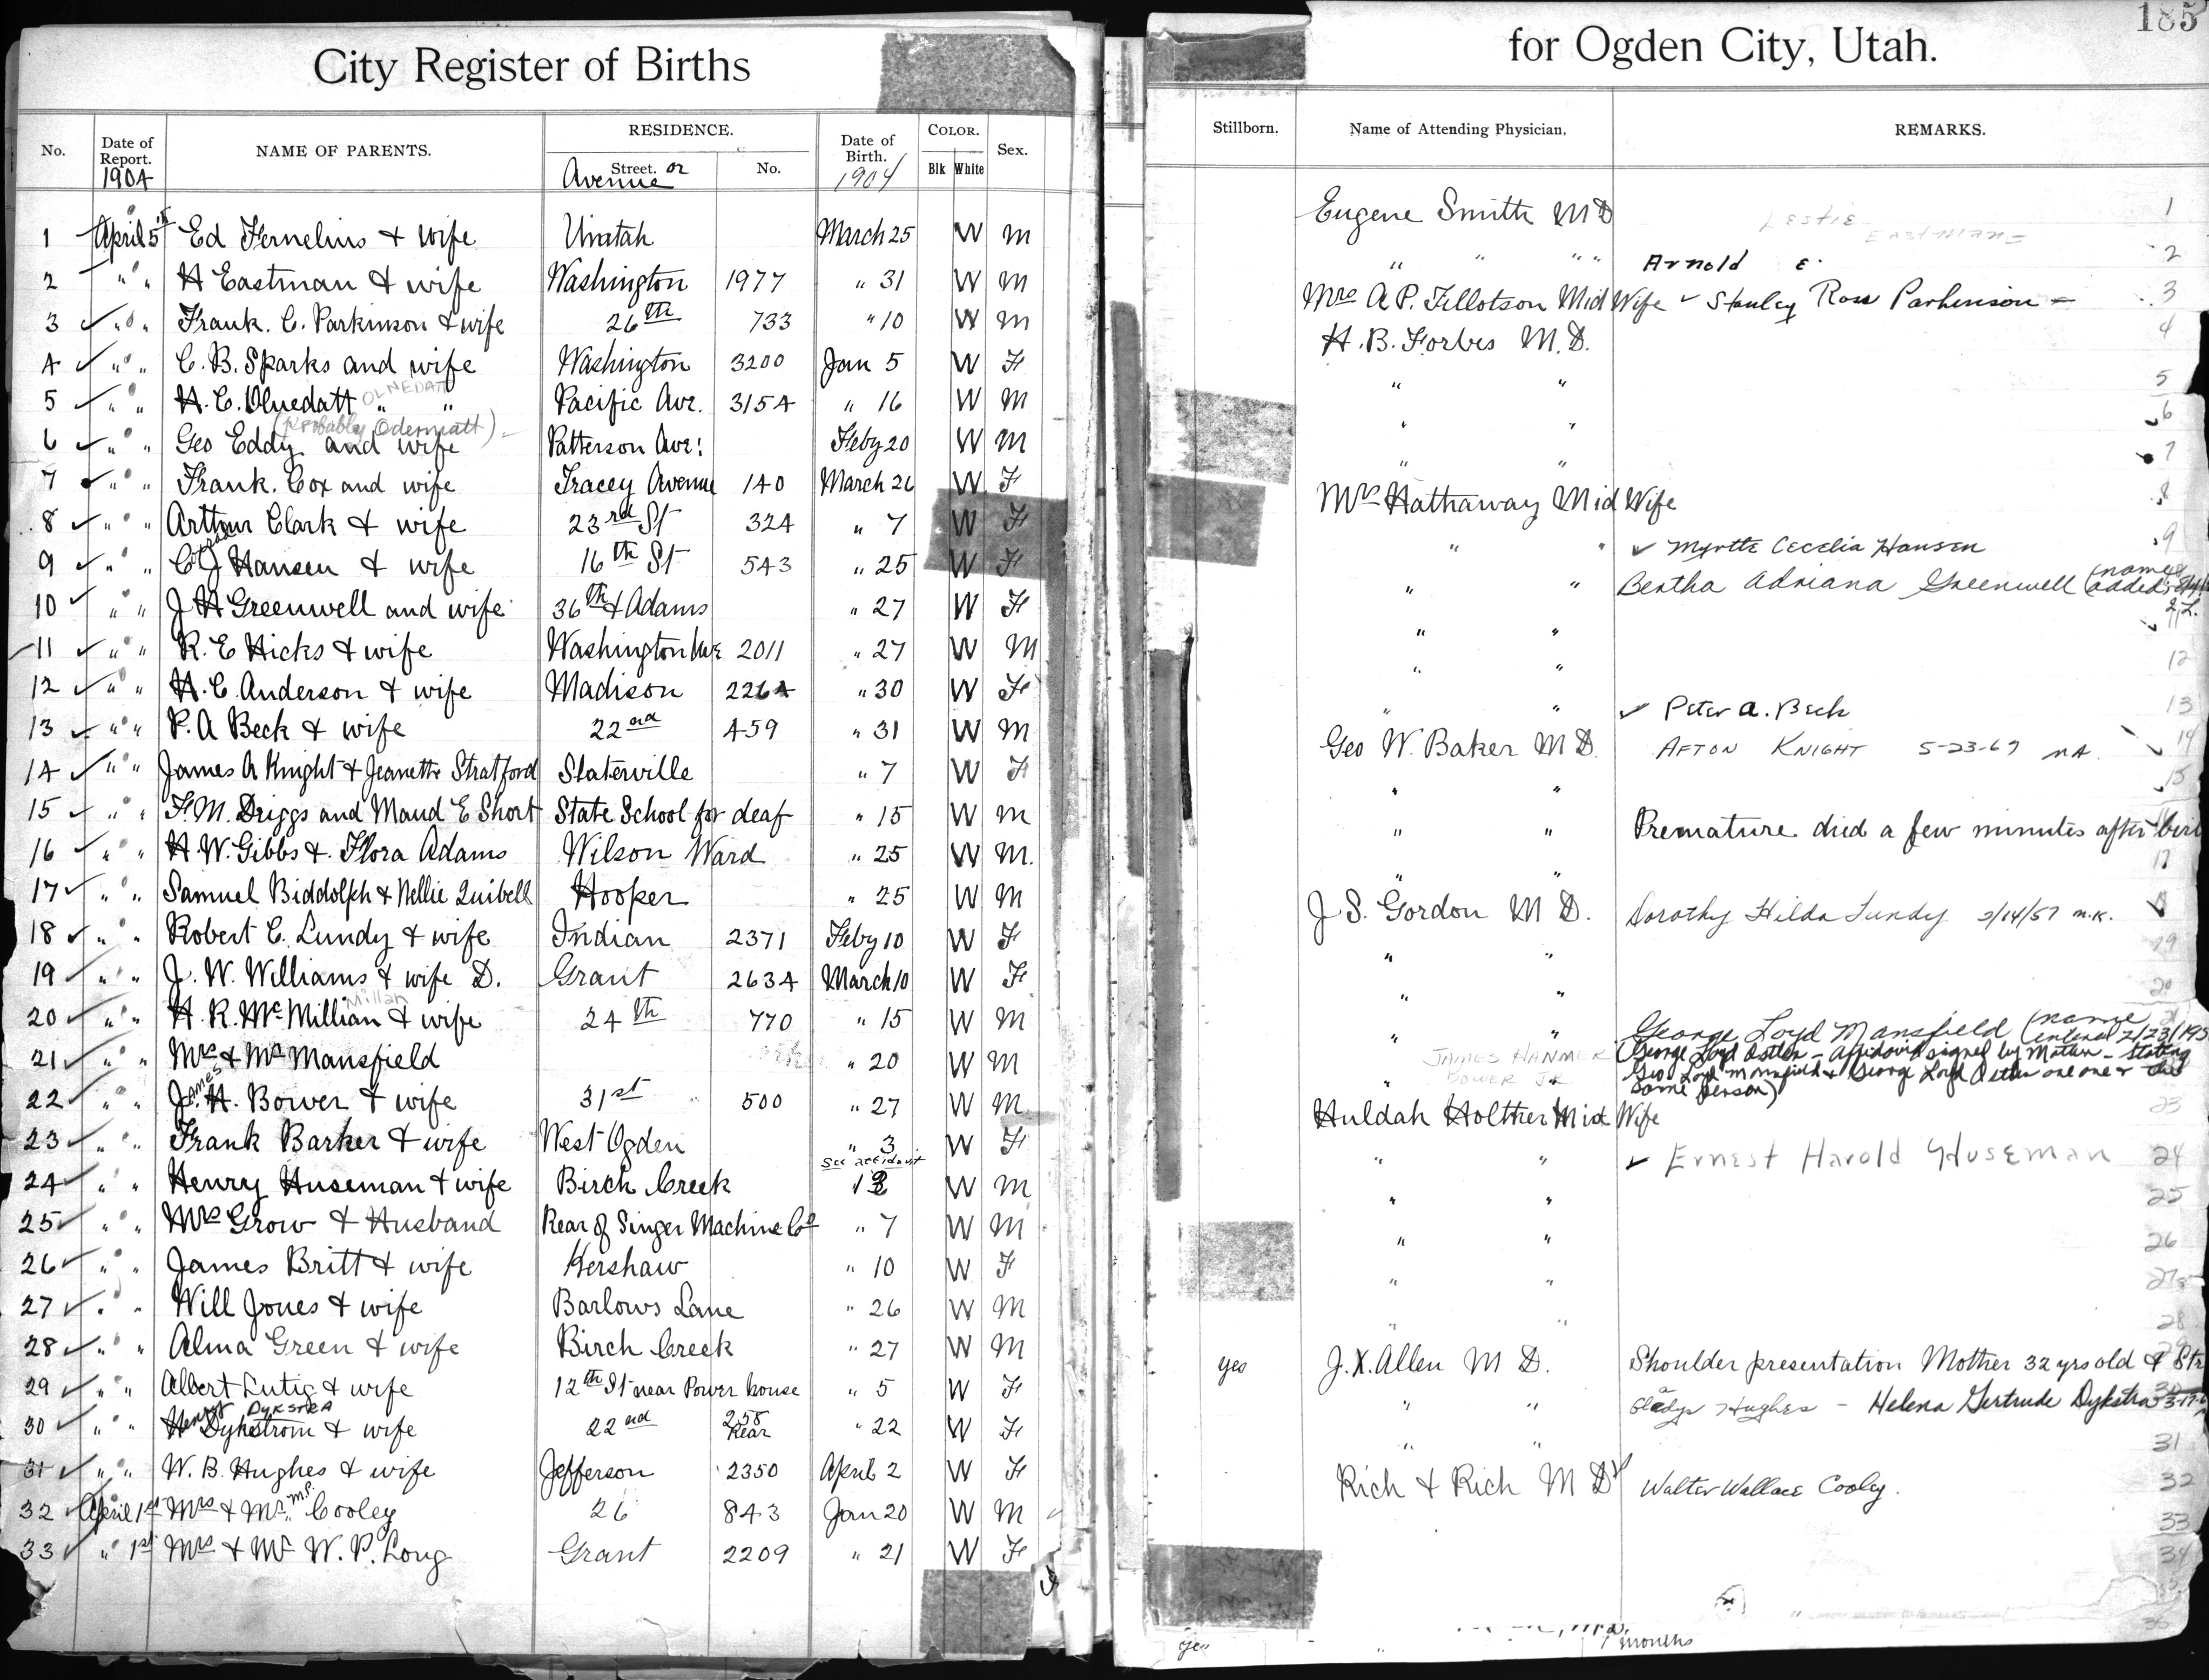 City Register of Births
No. Date of Report. NAME OF PARENTS. RESIDENCE. Date of Birth. COLOR. Sex.
1904 Avenue Street. or No. 1904 Blk White
1 April 5th Ed Fernelius & wife Uintah March 25 W M
2 " " H Eastman & wife Washington 1977 " 31 W M
3 " " Frank. C. Parkinson & wife 26th 733 " 10 W M
4 " " C. B. Sparks and wife Washington 3200 Jan 5 W F
OLNEDATT
5 " " H. C. Olnedatt " " Pacific Ave. 3154 " 16 W M
(probably Odermatt)
6 " " Geo Eddy and wife Patterson Ave: Feby 20 W M
7 " " Frank. Cox and wife Tracey Avenue 140 March 26 W F
8 " " Arthur Clark & wife 23rd St 324 " 7 W F
9 " " C J Hansen & wife 16th St 543 " 25 W F
10 " " J H Greenwell and wife 36th & Adams " 27 W F
11 " " R. E Hicks & wife Washington Ave 2011 " 27 W M
12 " " H. C. Anderson & wife Madison 2264 " 30 W F
13 " " P. A Beck & wife 22nd 459 " 31 W M
14 " " James A Knight & Jeanette Stratford Slaterville " 7 W F
15 " " F. M. Driggs and Maud E Short State School for deaf " 15 W M
16 " " H. W. Gibbs & Flora Adams Wilson Ward " 25 W M.
17 " " Samuel Biddolph & Nellie Quibell Hooper " 25 W M
18 " " Robert C. Lundy & wife Indian 2371 Feby 10 W F
19 " " J. W. Williams & wife D. Grant 2634 March 10 W F
Millan
20 " " H. R. McMillian & wife 24th 770 " 15 W M
21 " " Mrs & Mr Mansfield " 20 W M
James
22 " " J. H. Bower & wife 31st 500 " 27 W M
23 " " Frank Barker & wife West Ogden " 3 W F
See affidavit
24 " " Henry Huseman & wife Birch Creek W M
25 " " Mrs Grow & Husband Rear of Singer Machine Co " 7 W M
26 " " James Britt & wife Kershaw " 10 W F
27 " " Will Jones & wife Barlows Lane " 26 W M
28 " " Alma Green & wife Birch Creek " 27 W M
29 " " Albert Lutig & wife 12th St near Power house " 5 W F
Henry DYKSTRA
30 " " H Dykstrom & wife 22nd 258 Rear " 22 W F
31 " " W. B. Hughes & wife Jefferson 2350 April 2 W F
32 April 1st Mrs & Mr. M.P. Cooley 26 843 Jan 20 W M
33 " 1st Mrs & Mr W. P. Long Grant 2209 " 21 W F
185
for Ogden City, Utah.
Stillborn. Name of Attending Physician. REMARKS.
Eugene Smith M D 1
Leslie Eastman
" " " " Arnold E. 2
Mrs A. P. Tillotson Mid Wife Stanley Ross Parkinson 3
H. B. Forbes M. D. 4
" " 5
" " 6
" " 7
Mrs Hathaway Mid Wife 8
" " Myrtle Cecelia Hansen 9
" " Bertha Adriana Greenwell (name added
" "
" " 12
" " Peter A. Beck 13
Geo W. Baker M D. AFTON KNIGHT 5-23-67 14
" " 15
" " Premature died a few minutes after
" " 17
J S. Gordon M D. Dorothy Hilda Lundy 2/14/57 m.K.
" " 19
" " 20
" " George Loyd Mansfield (name entered 2/23/195
JAMES HANMER BOWER JR
(George Loyd Ostler - Affidavit signed by Mother - stating
Geo Loyd Mansfield & George Loyd Ostler are one & the
same person)
Huldah Holther Mid Wife 23
" " Ernest Harold Huseman 24
" " 25
" " 26
" " 27
" " 28
yes J. X. Allen M D. Shoulder presentation Mother 32 yrs old &
" " Gladys Hughes - Helena Gertrude Dykstra
" " 31
Rich & Rich M D Walter Wallace Cooley. 32
33
34
yes " months